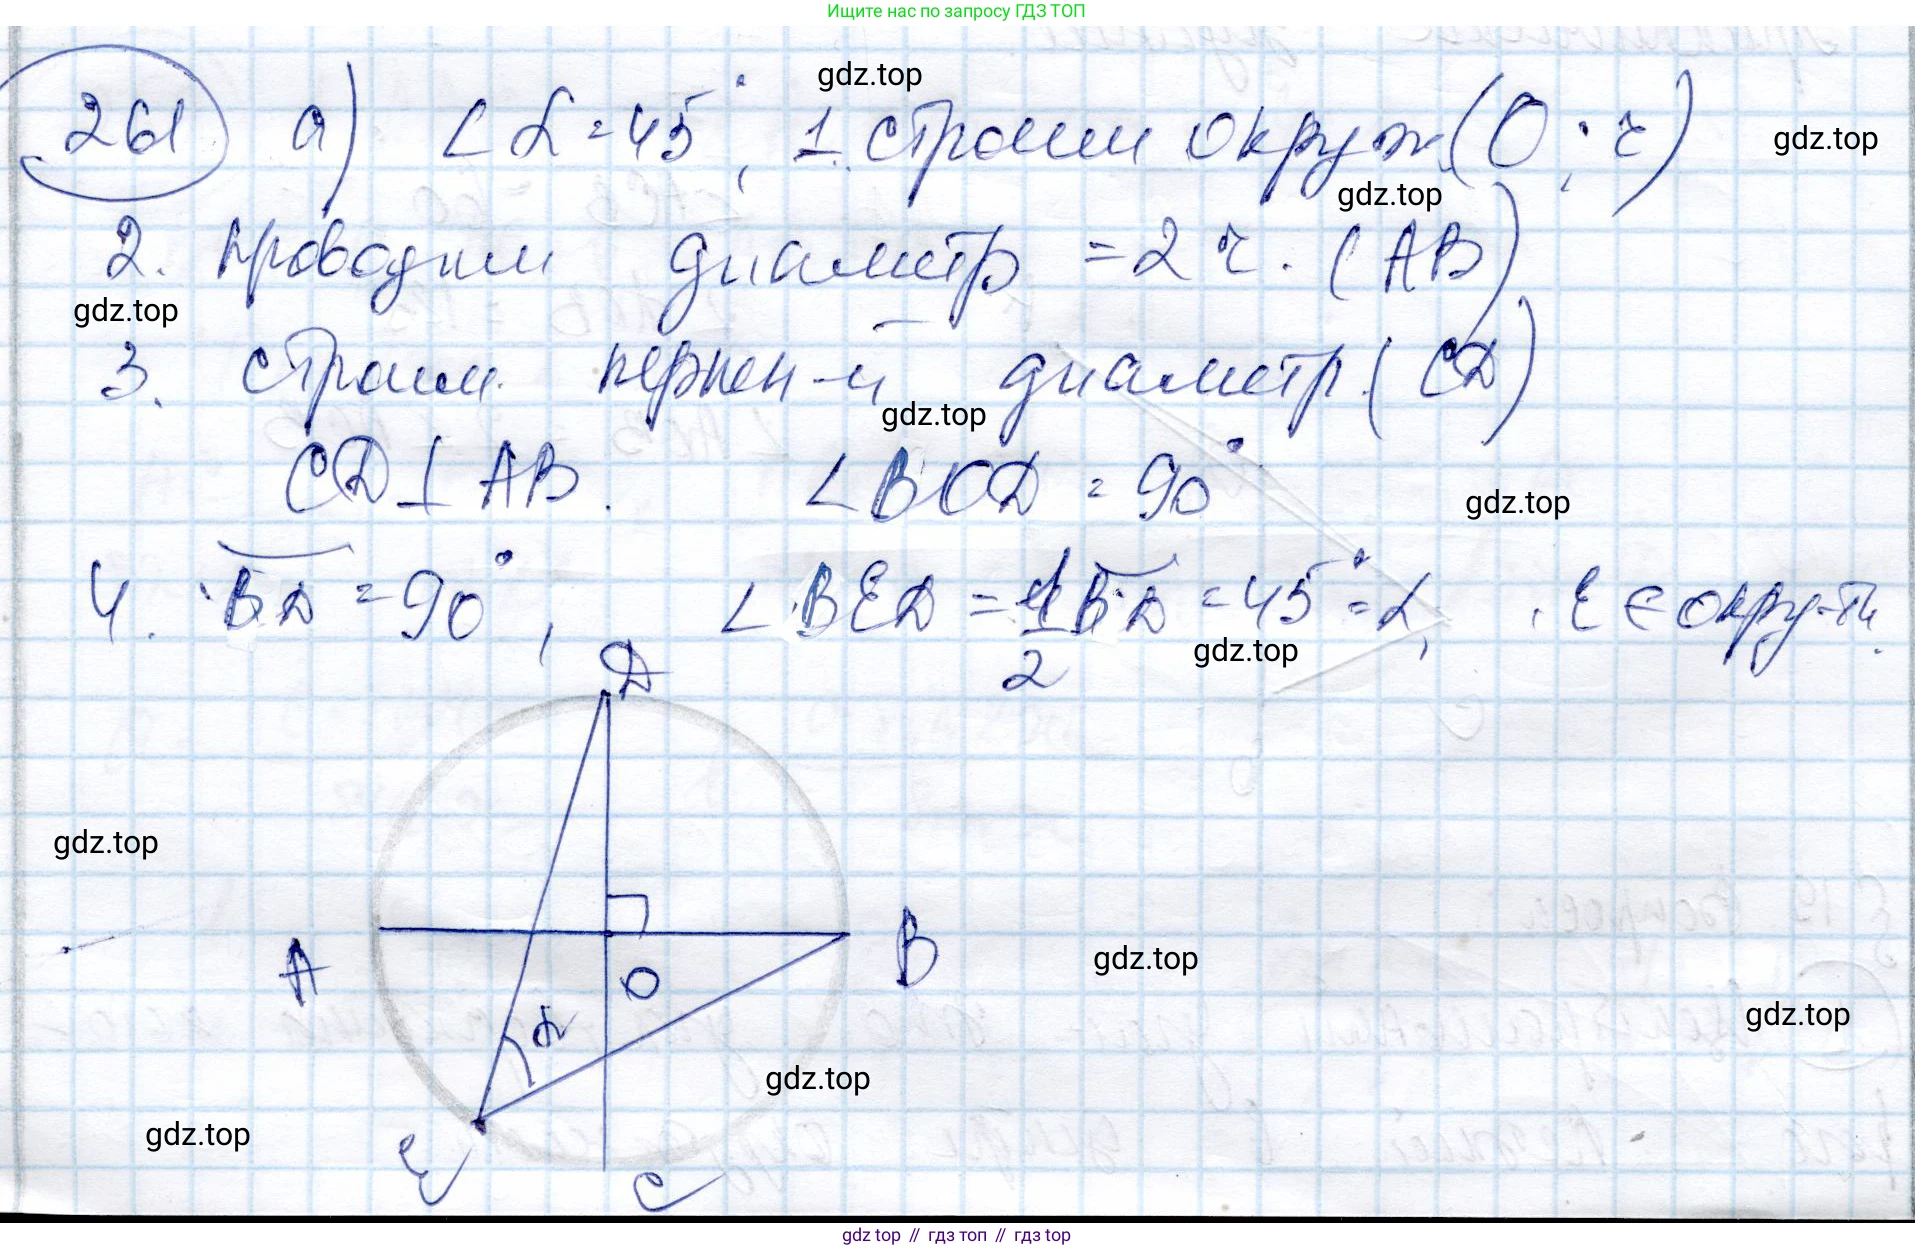 Ищите нас по запросу ГДЗ ТОП
261 а) ∠α = 45°, 1. строим окруж (O; r)
gdz.top
gdz.top
gdz.top
2. проводим диаметр = 2r. (AB)
gdz.top
3. строим перпен-й диаметр (CD)
gdz.top
CD ⊥ AB. ∠BOD = 90°
gdz.top
4. BD = 90°, ∠BED = 1/2 BD = 45° = α, E ∈ окру-ти.
gdz.top
D
gdz.top
A O B
gdz.top
gdz.top
α
gdz.top
gdz.top
E C
gdz.top // гдз топ // гдз top